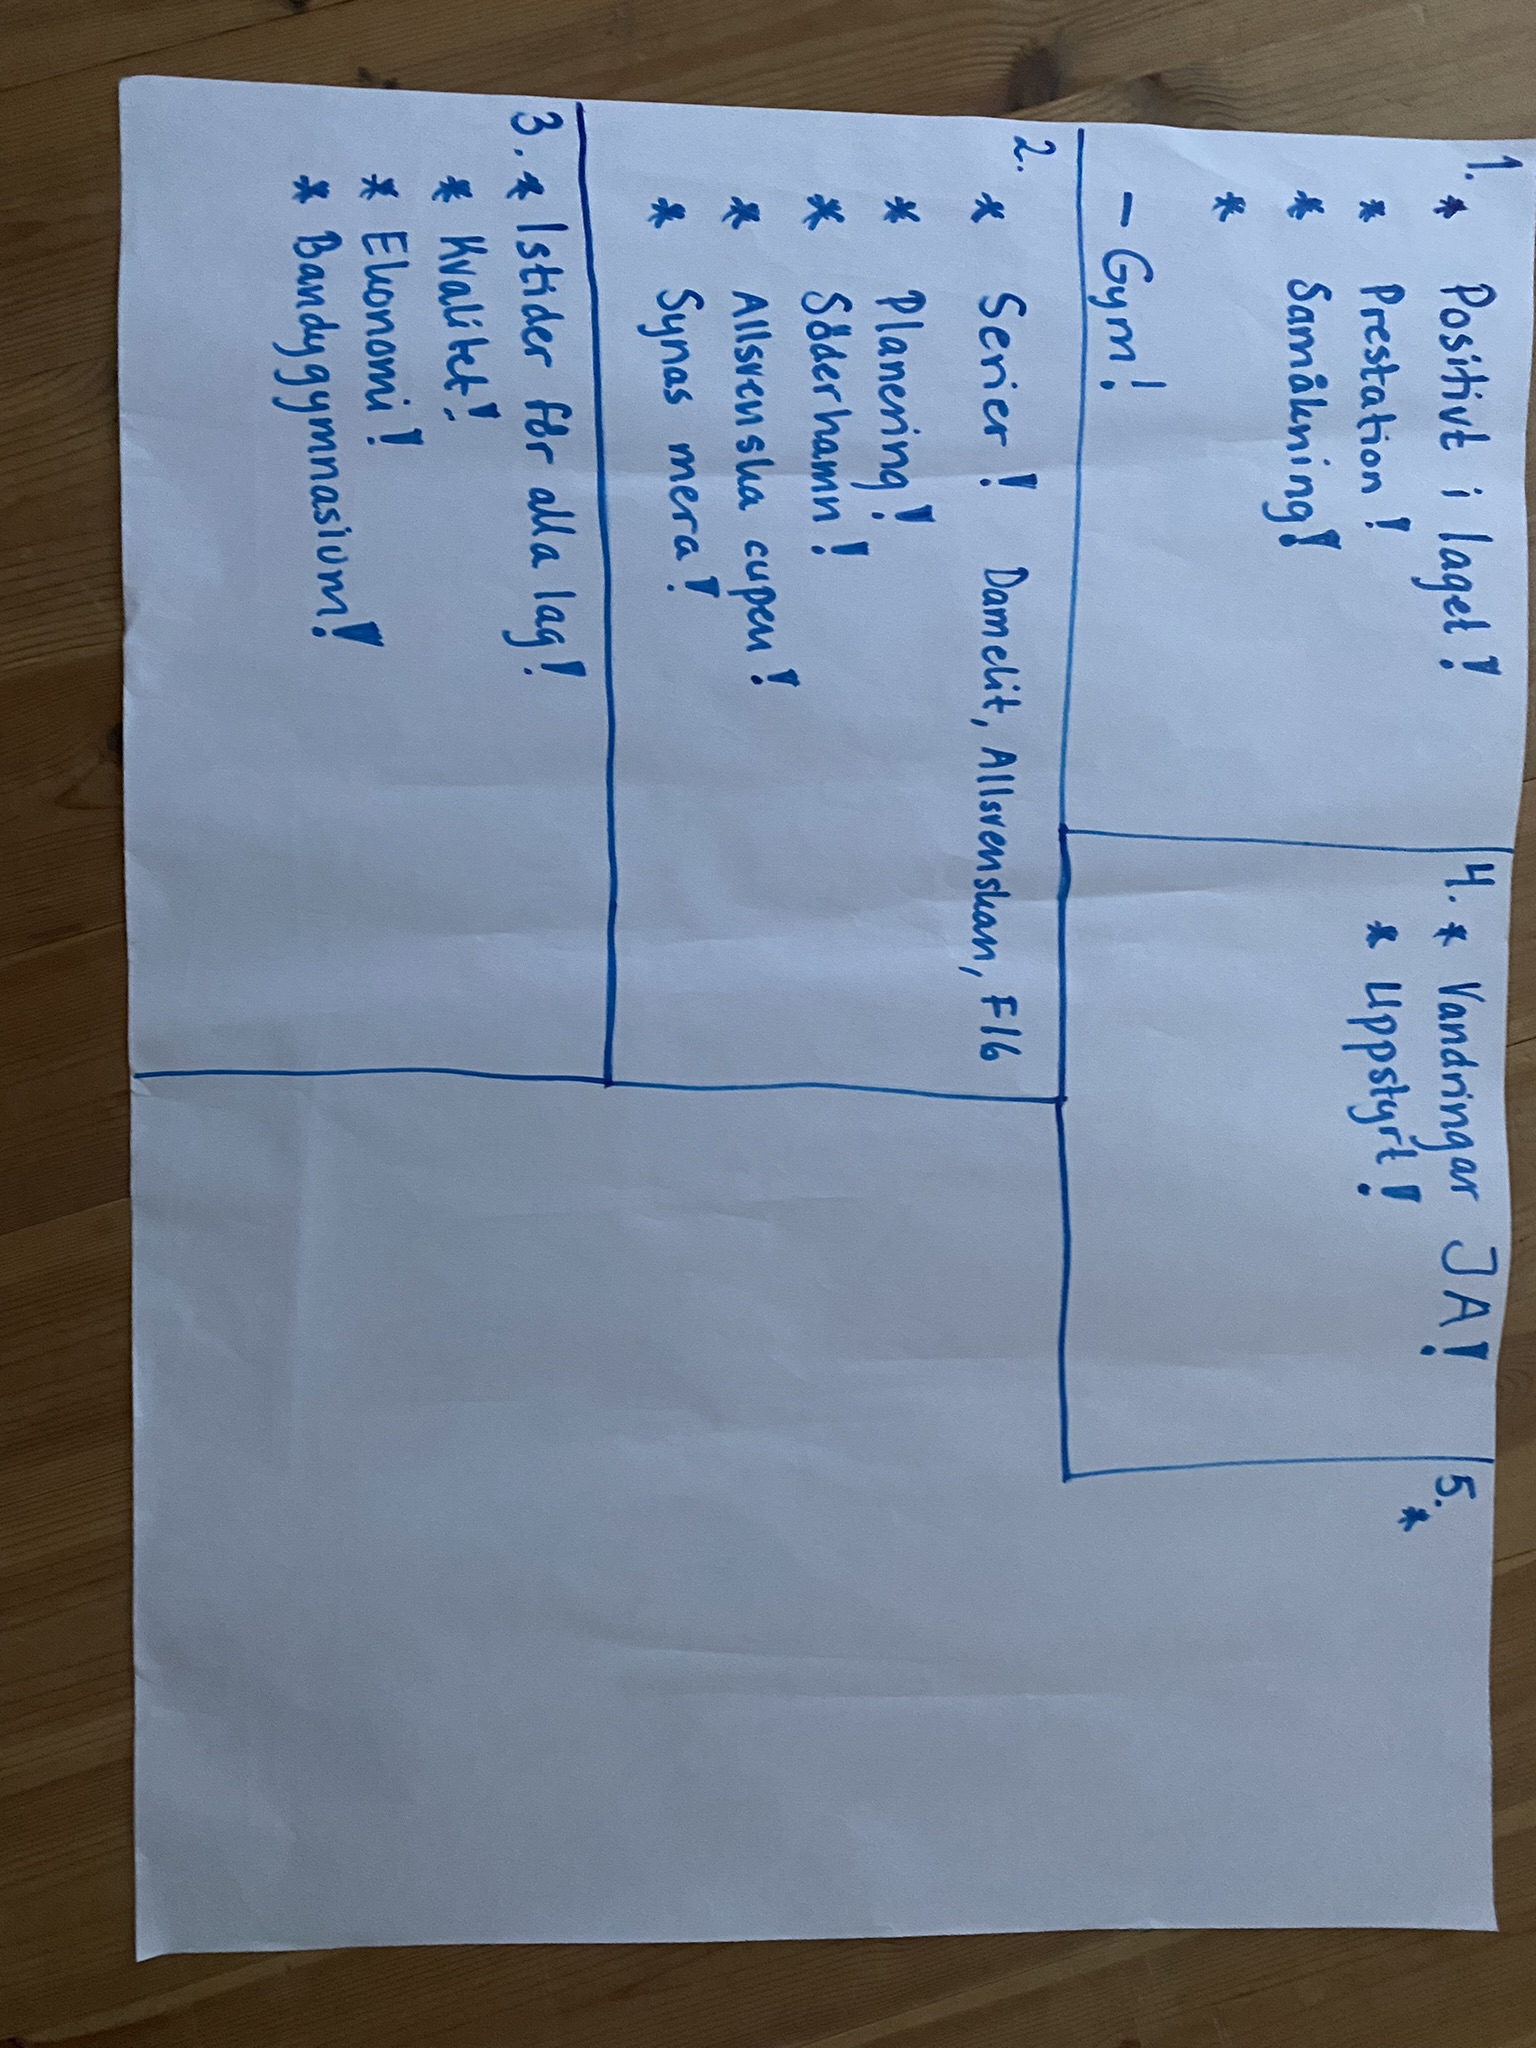 1. * Positivt i laget!
* Prestation!
* Samåkning!
*
- Gym!
2. * Serier! Damelit, Allsvenskan, F16
* Planering!
* Söderhamn!
* Allsvenska cupen!
* Synas mera!
3. * Istider för alla lag!
* Kvalitet!
* Ekonomi!
* Bandygymnasium!
4. * Vandringar JA!
* Uppstyrt!
5. *